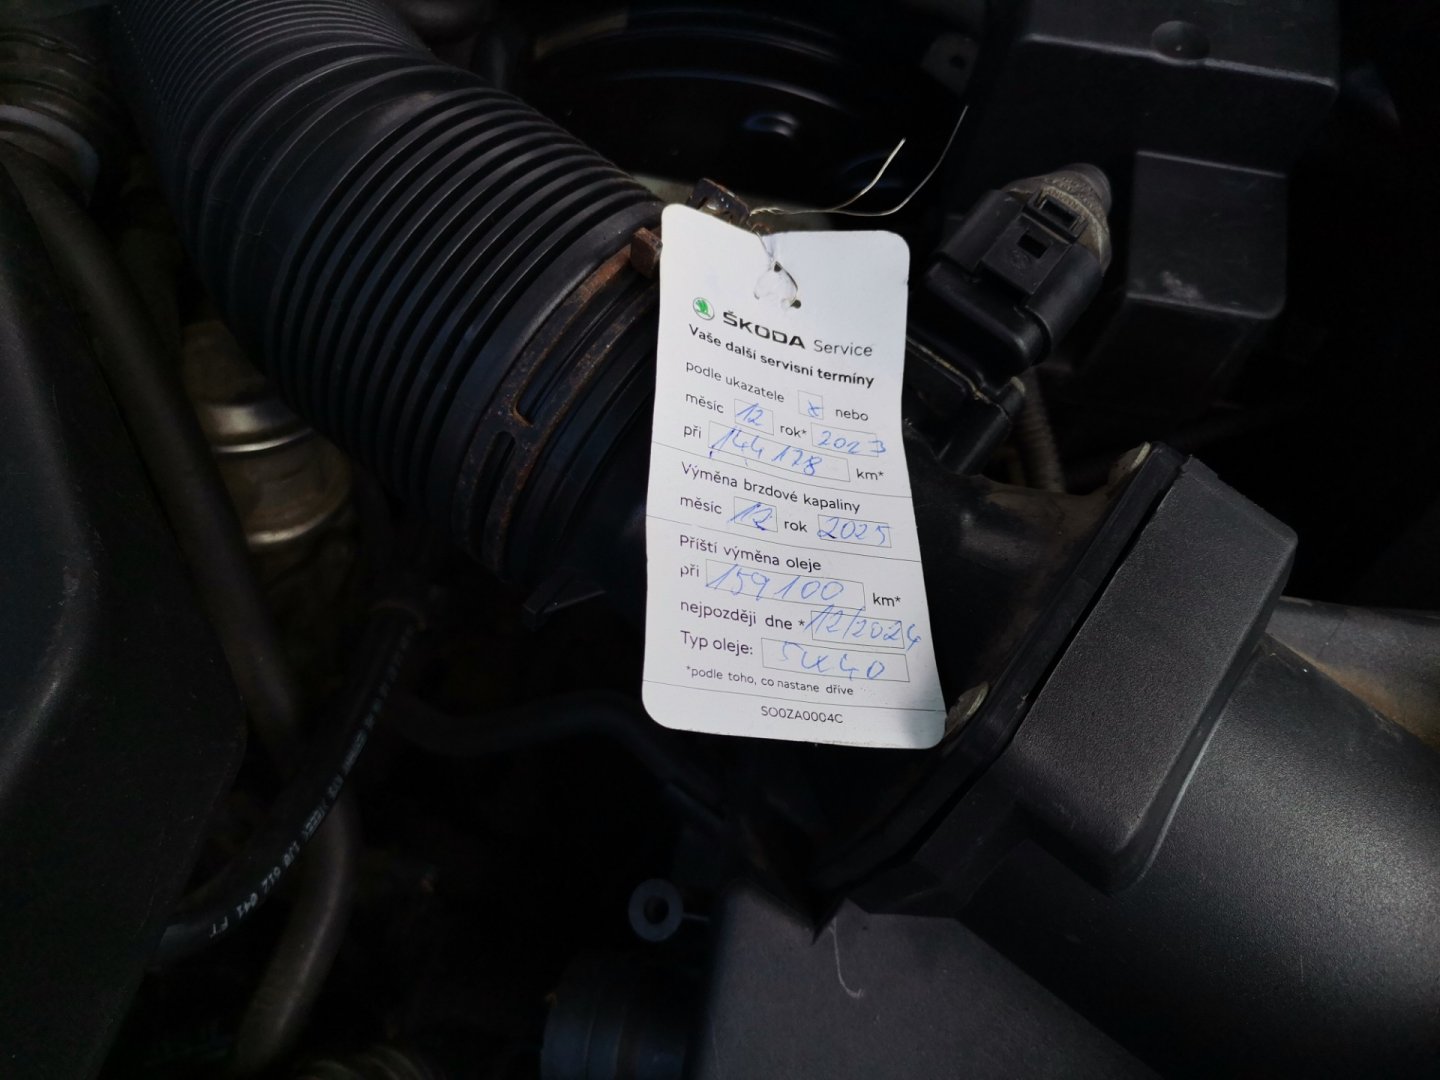 ŠKODA Service
Vaše další servisní termíny
podle ukazatele x nebo
měsíc 12 rok* 2023
při 144 178 km*
Výměna brzdové kapaliny
měsíc 12 rok 2025
Příští výměna oleje
při 159 100 km*
nejpozději dne * 12/2024
Typ oleje: 5W40
*podle toho, co nastane dříve
SO0ZA0004C